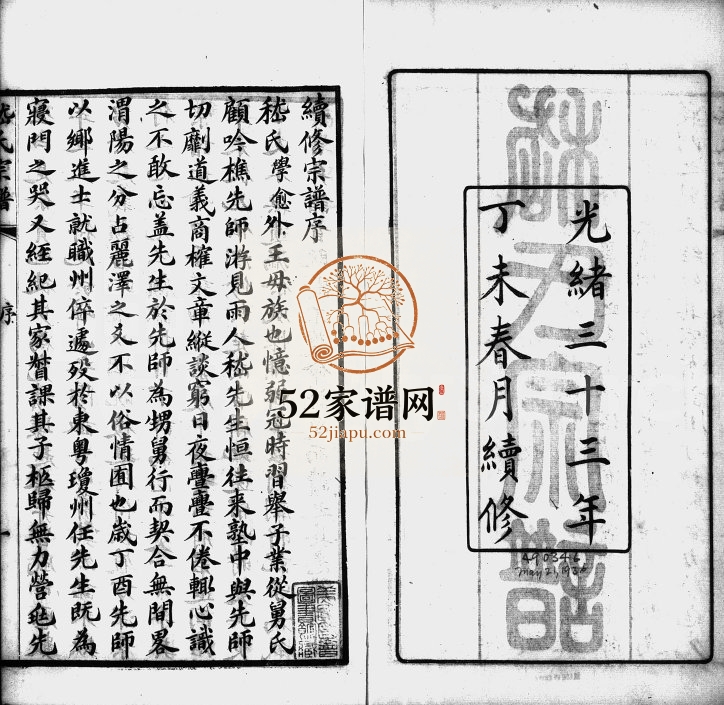 光緒三十三年
丁未春月續修
490346
May 21, 1936
52家谱网
52jiapu.com
續修宗譜序
嵇氏學愈外王母族也憶弱冠時習舉子業從舅氏
顧吟樵先師游見雨人嵇先生恒往来塾中與先師
切劘道義商榷文章縱談窮日夜亹亹不倦輒心識
之不敢忘盖先生於先師為甥舅行而契合無間畧
渭陽之分占麗澤之爻不以俗情囿也歲丁酉先師
以鄉進士就職州倅遽歿於東粤瓊州任先生既為
寢門之哭又經紀其家督課其子柩歸無力營兆先
嵇氏宗譜
序
一